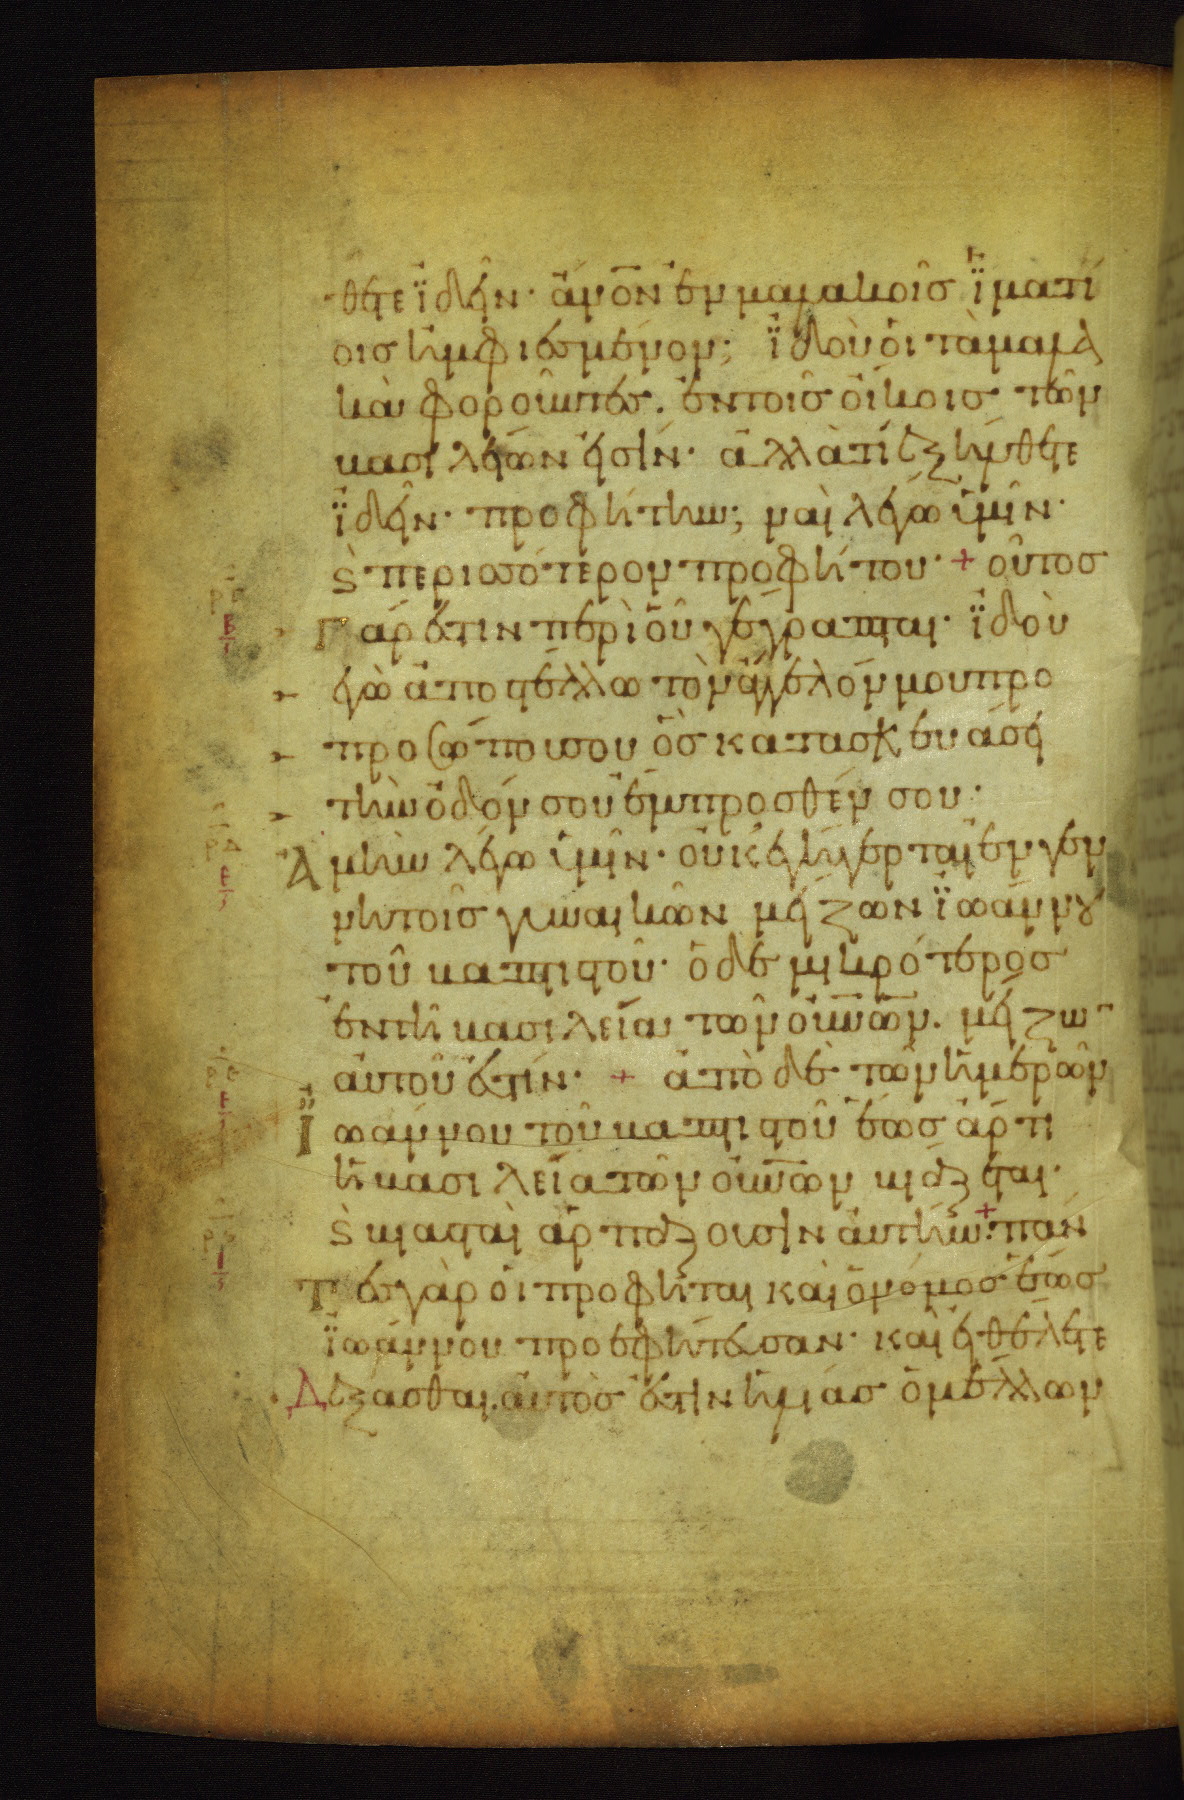 θετε ϊδεῖν· ἄνον̅ ἐν μαλακοῖς ϊματί
οις ἠμφιεσμένον; ϊδοὺ οἱ τὰ μαλα
κὰ φοροῦντες. ἐν τοῖς οἴκοις τῶν
βασιλέων εἰσὶν· ἀλλὰ τί ἐξήλθετε
ϊδεῖν· προφήτην; ναὶ λέγω ὑμῖν·
ϛ περισσότερον προφήτου· + οὗτος
γάρ ἐστιν περὶ οὗ γέγραπται· ϊδοὺ
ἐγὼ ἀποστέλλω τὸν ἄγγελόν μου προ
προσώπου σου ὃς κατασκευάσει
τὴν ὁδόν σου ἔμπροσθέν σου·
Ἀμὴν λέγω ὑμῖν· οὐκ ἐγήγερται ἐν γεν
νητοῖς γυναικῶν μείζων ϊωάννου
τοῦ βαπτιστοῦ· ὁ δὲ μικρότερος
ἐν τῆ βασιλεία τῶν οὐν̅ῶν. μείζω¯
αὐτοῦ ἐστίν· + ἀπὸ δὲ τῶν ἡμερῶν
Ϊωάννου τοῦ βαπτιστοῦ ἕως ἄρτι
ἡ βασιλεία τῶν οὐν̅ῶν βιάζεται·
ϛ βιασταὶ ἁρπάζουσιν αὐτήν· + πάν
τες γὰρ οἱ προφῆται καὶ ὁ νόμος ἕως
ϊωάννου προεφήτευσαν· καὶ εἰ θέλετε
Δέξασθαι. αὐτὸς ἐστιν ἠλίας ὁ μέλλων